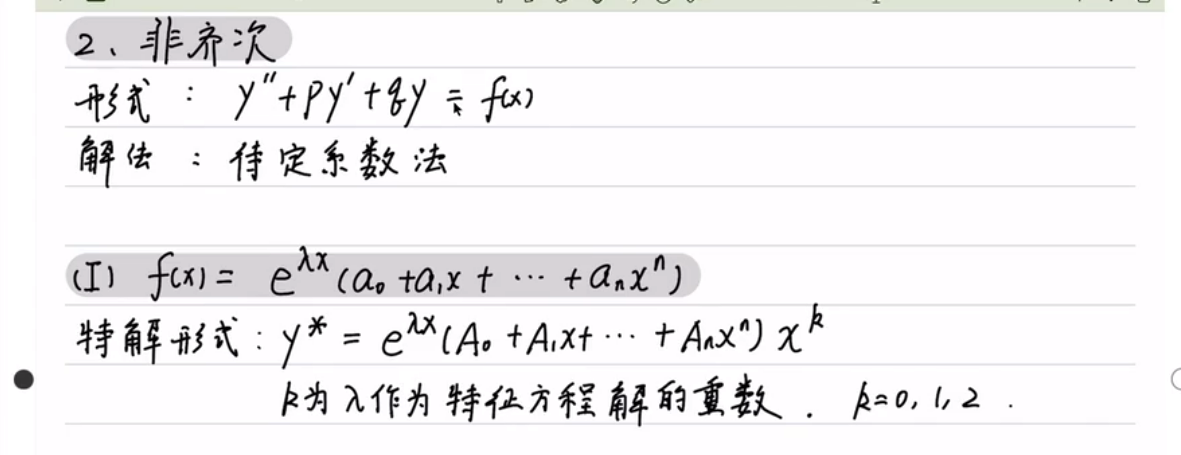 2、非齐次
形式：y''+py'+qy = f(x)
解法：待定系数法
(I) f(x) = e^{λx}(a₀+a₁x+⋯+aₙxⁿ)
特解形式：y* = e^{λx}(A₀+A₁x+⋯+Aₙxⁿ)x^k
k为λ作为特征方程解的重数．k=0,1,2．